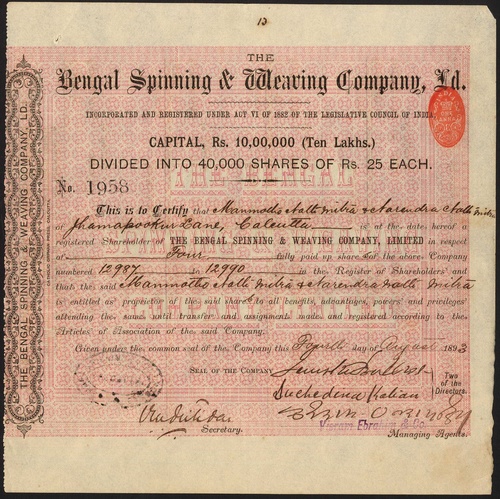 13
THE
Bengal Spinning & Weaving Company, Ld.
INCORPORATED AND REGISTERED UNDER ACT VI OF 1882 OF THE LEGISLATIVE COUNCIL OF INDIA.
CAPITAL, Rs. 10,00,000 (Ten Lakhs.)
DIVIDED INTO 40,000 SHARES OF Rs. 25 EACH.
THE BENGAL
No. 1958
This is to Certify that Manmotho Nath Mitra & Narendra Nath Mitra
of Jhamapookur Lane, Calcutta is at the date hereof a
registered Shareholder of THE BENGAL SPINNING & WEAVING COMPANY, LIMITED in respect
of Four fully paid up share of the above Company
numbered 12987 to 12990 in the Register of Shareholders and
that the said Manmotho Nath Mitra & Narendra Nath Mitra
is entitled as proprietor of the said share to all benefits, advantages, powers and privileges
attending the same until transfer and assignment made and registered according to the
Articles of Association of the said Company.
Given under the common seal of the Company this Fourth day of August 1893
SEAL OF THE COMPANY
Two of the Directors.
Secretary.
Ebrahim & Co
Managing Agents.
THE BENGAL SPINNING & WEAVING COMPANY, LD.